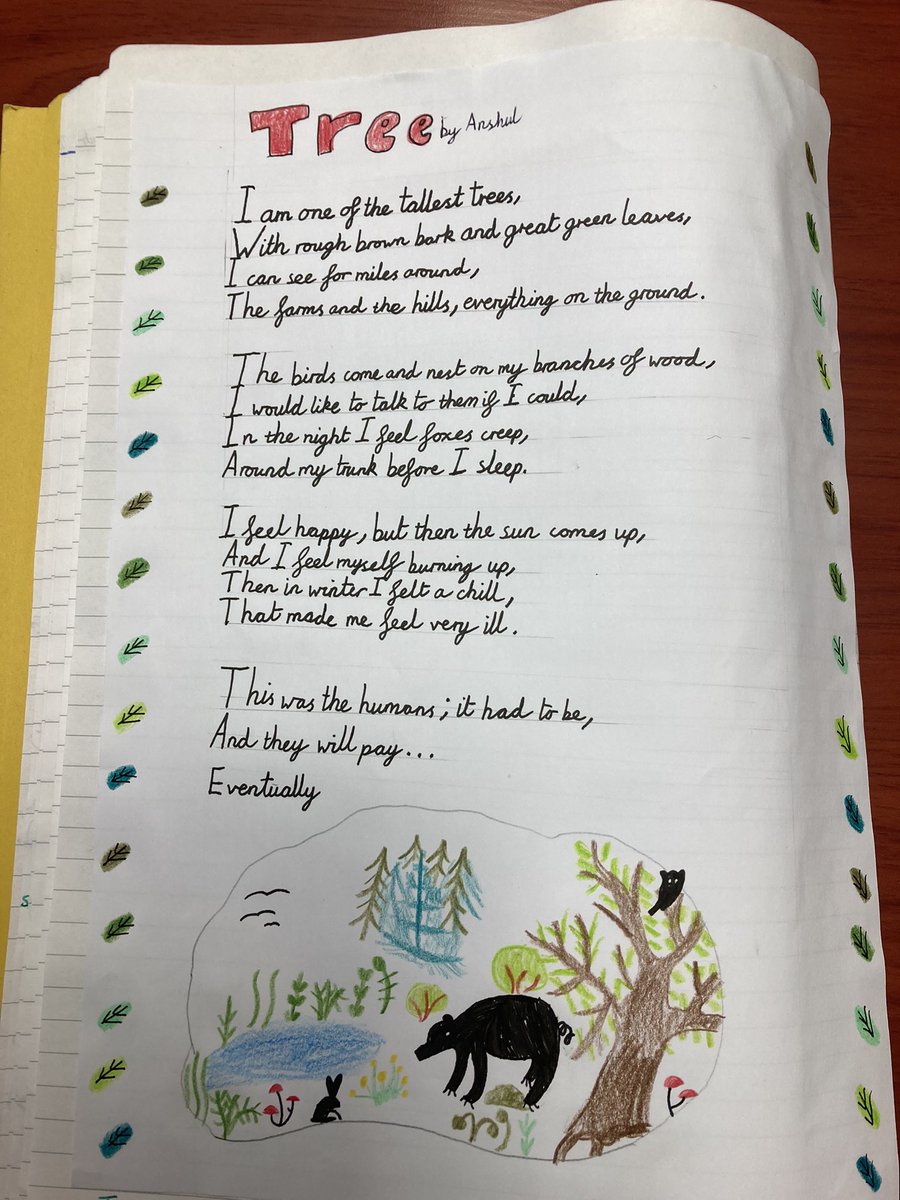 Tree by Anshul
I am one of the tallest trees,
With rough brown bark and great green leaves,
I can see for miles around,
The farms and the hills, everything on the ground.
The birds come and nest on my branches of wood,
I would like to talk to them if I could,
In the night I feel foxes creep,
Around my trunk before I sleep.
I feel happy, but then the sun comes up,
And I feel myself burning up,
Then in winter I felt a chill,
That made me feel very ill.
This was the humans; it had to be,
And they will pay...
Eventually
s